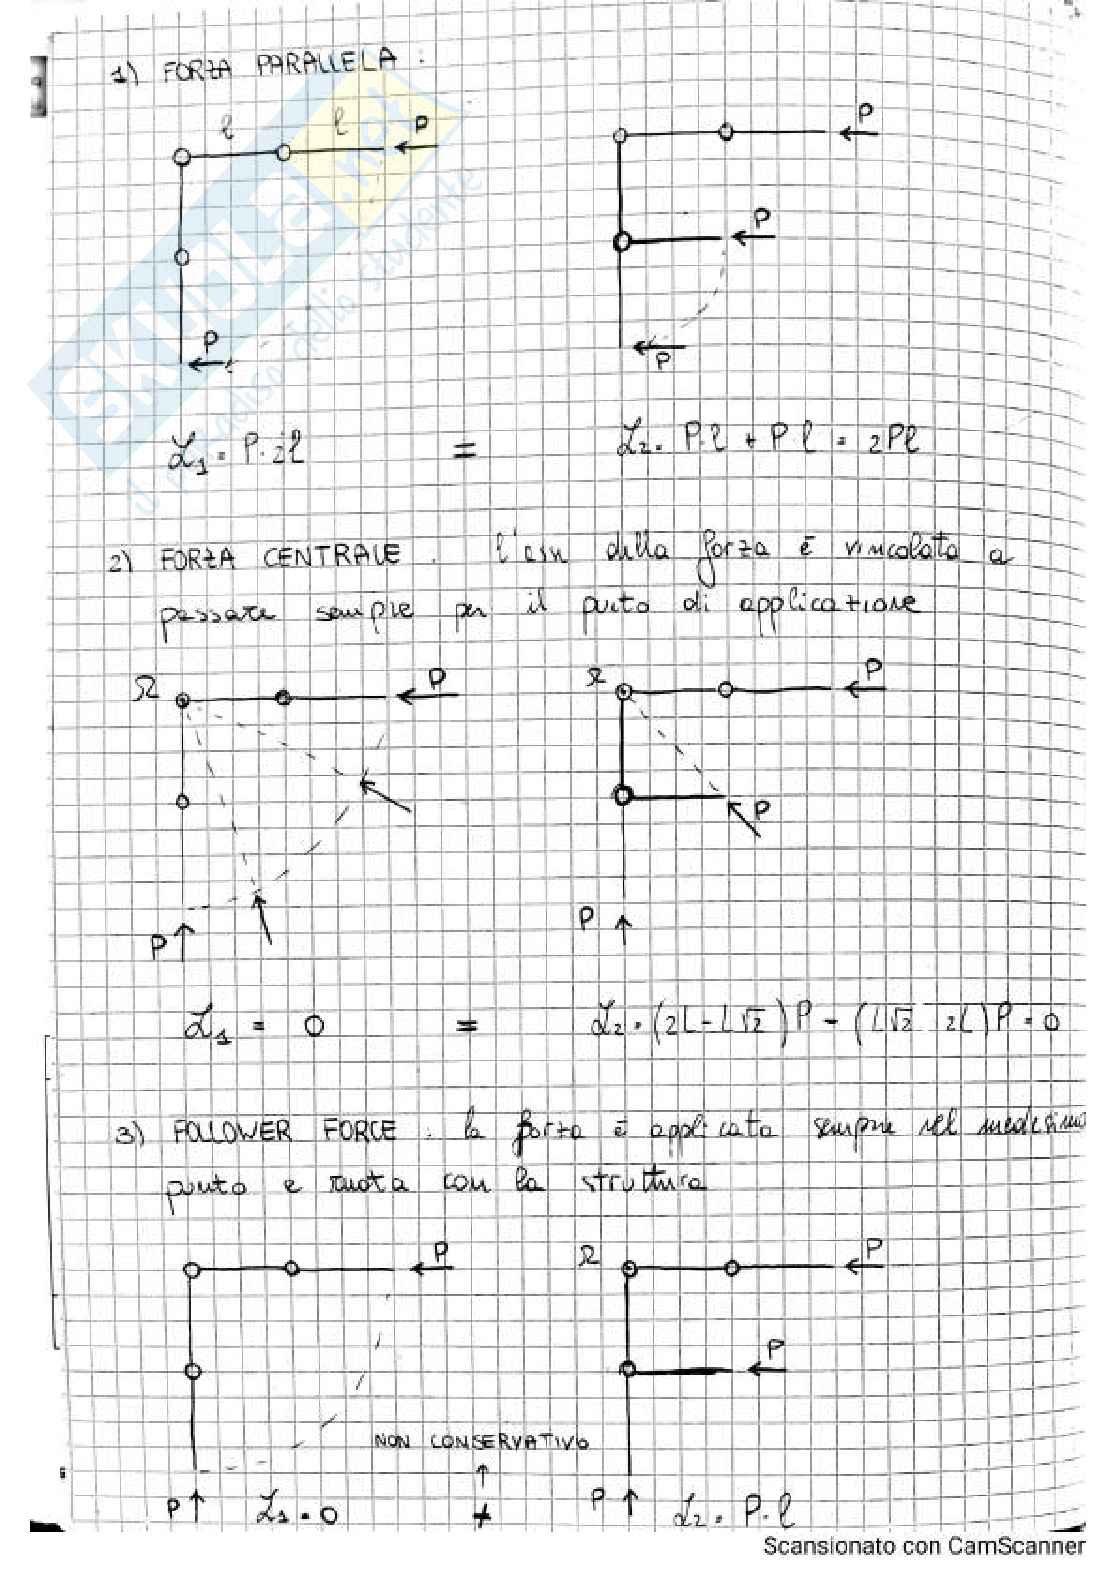 1) FORZA PARALLELA :
l l P P
P
P P
L1 = P·2l = L2 = P·l + P l = 2Pl
2) FORZA CENTRALE : l'asn della forza è vincolata a
passare sempre per il punto di applicazione
Ω P Ω P
P
P P
L1 = 0 = L2 = (2L-L√2)P - (L√2 2L)P = 0
3) FOLLOWER FORCE : la forza è applicata sempre nel medesimo
punto e ruota con la struttura
P Ω P
P
NON CONSERVATIVO
P L1 = 0 ≠ P L2 = P·l
SKUOLA.net
il paradiso dello studente
Scansionato con CamScanner